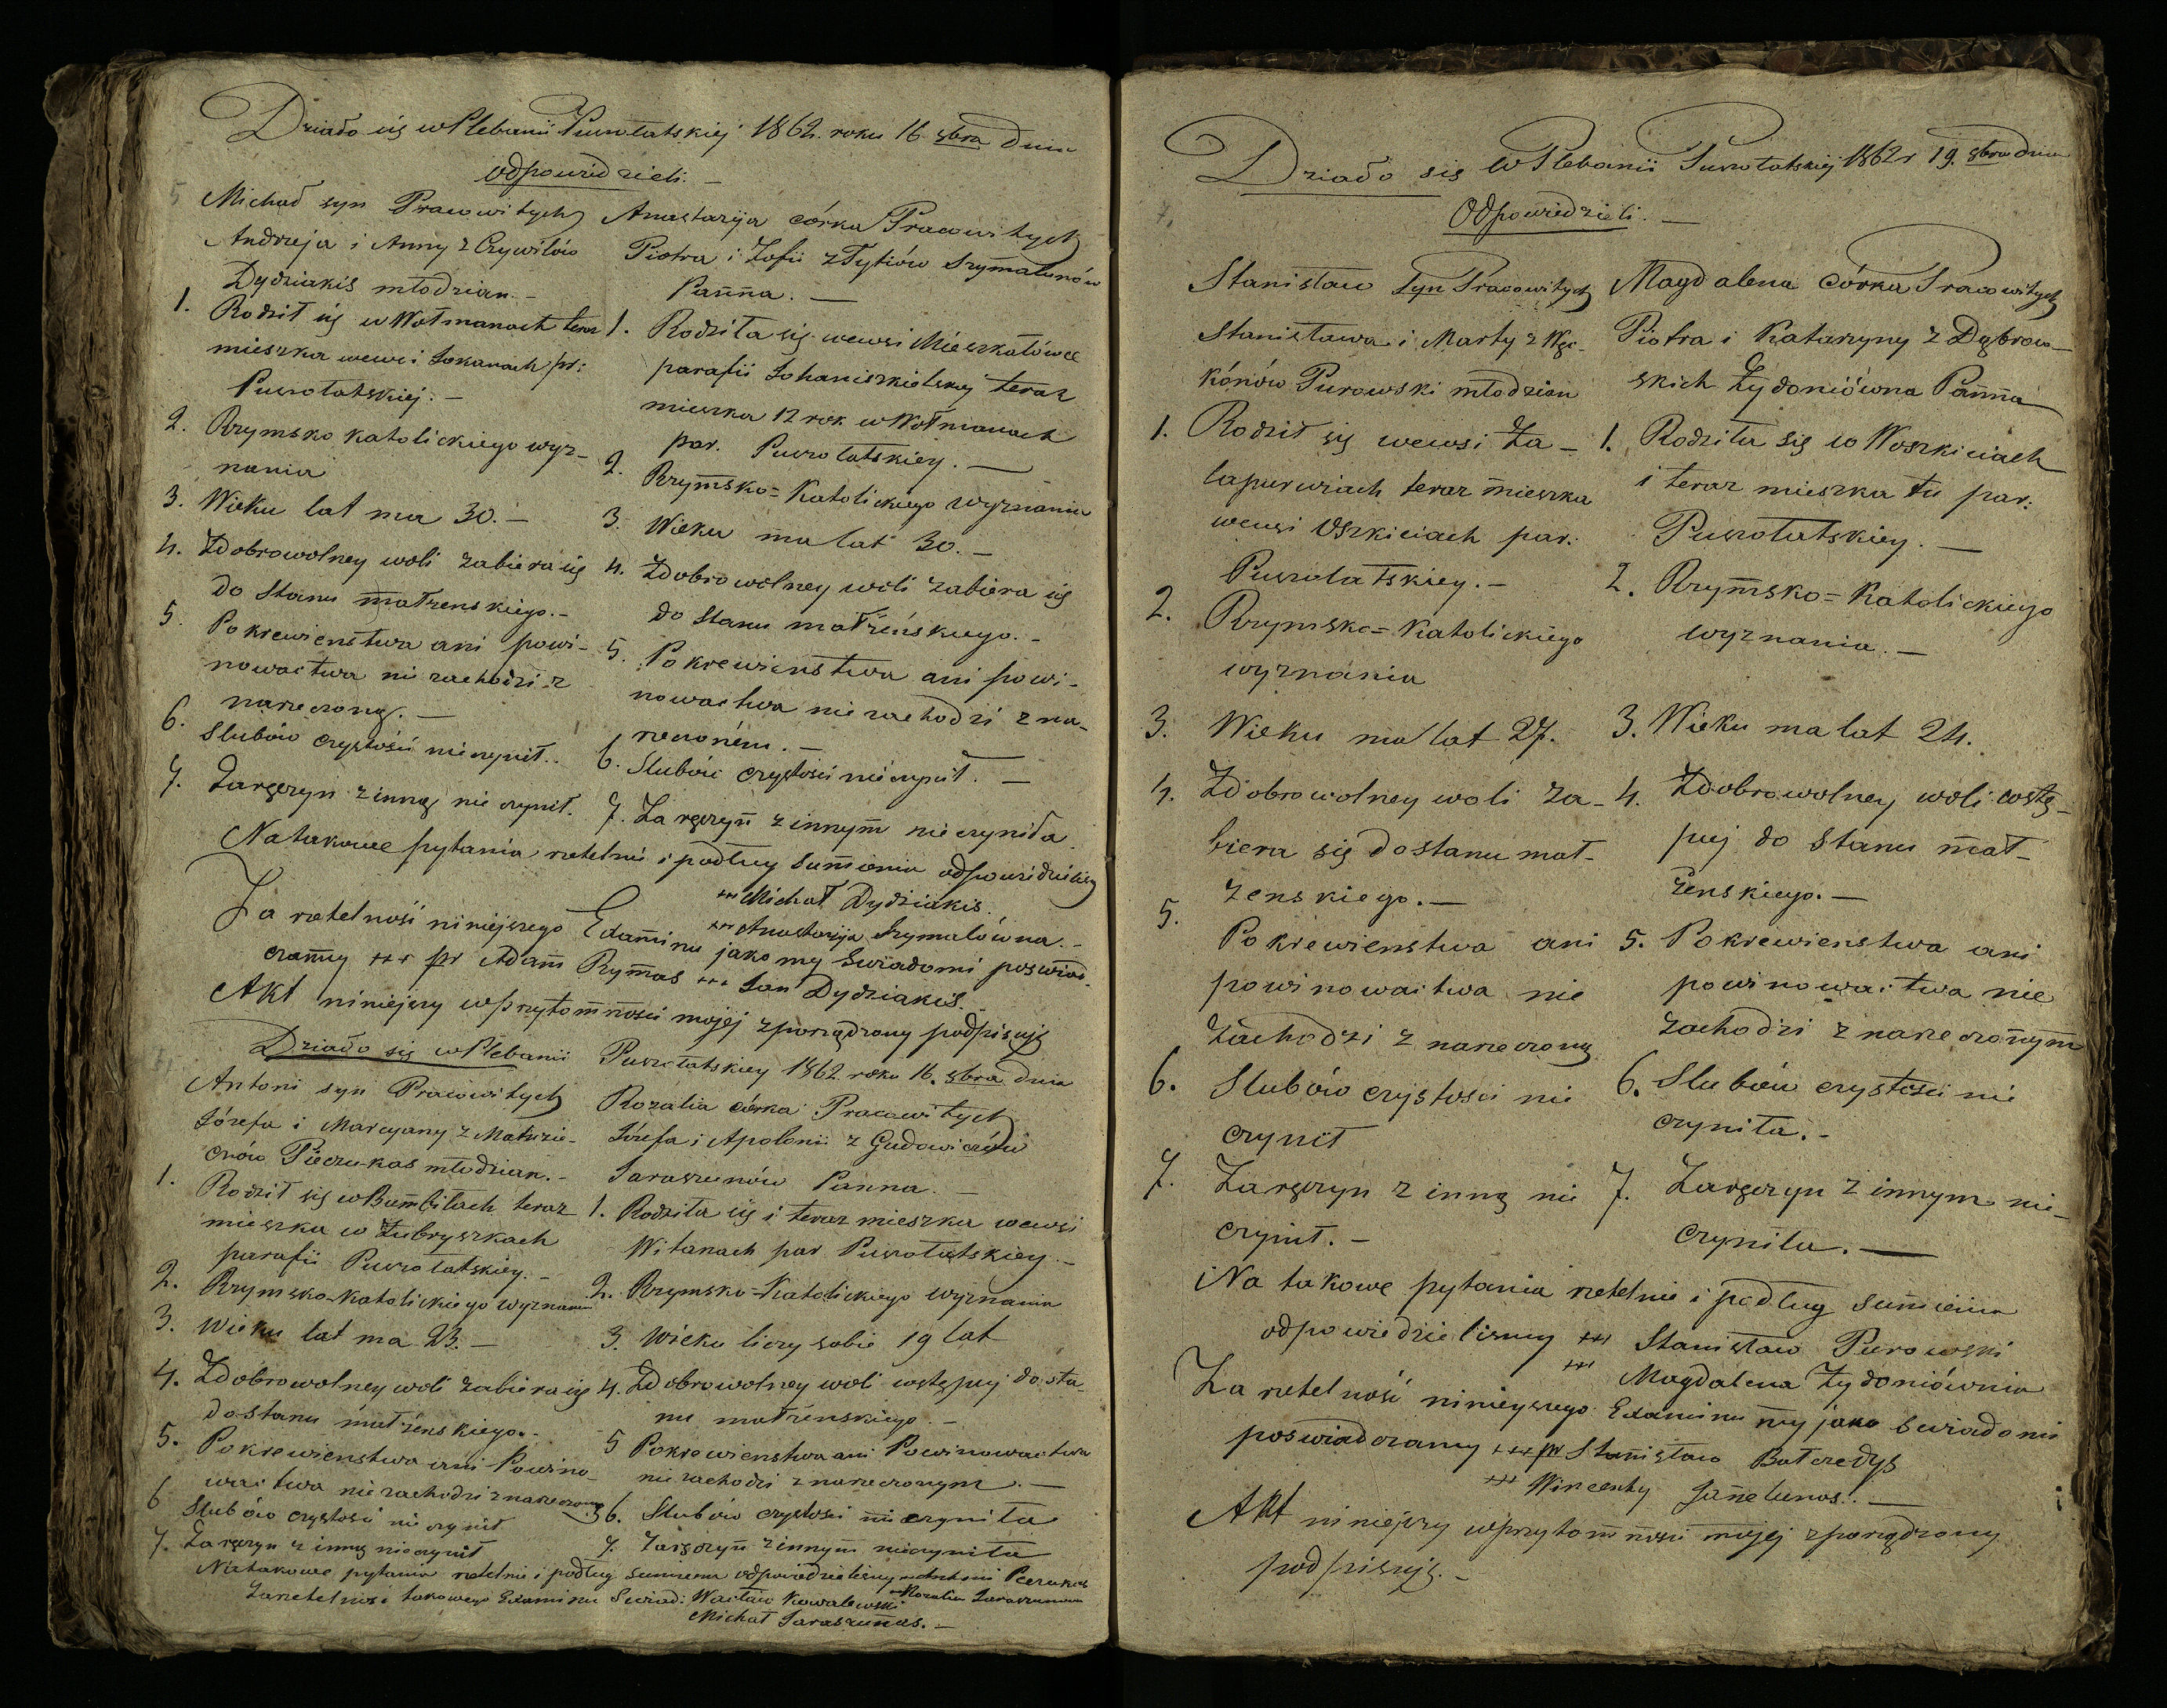 Działo się w Plebanii Puszołatskiej 1862. roku 16 9bra dnia
odpowiedzieli. —
5 Michał syn Pracowitych
Andrzeja i Anny z Czywilów
Dydziakis młodzian. —
1. Rodził się w Wołmanach teraz
mieszka wewsi Sokanach par:
Puszołatskiej. —
2. Rzymsko katolickiego wyz-
nania
3. Wieku lat ma 30. —
4. Zdobrowolney woli zabiera się
do Stanu małżenskiego. —
5. Pokrewienstwa ani powi-
nowactwa nie zachodzi z
narzeczoną. —
6. Slubów czystości nie czynił..
7. Zaręczyn z inną nie czynił.
Anastazija córka Pracowitych
Piotra i Zofii z Tytiów Szymalunów
Panna. —
1. Rodziła się wewsi Mieszkatówce
parafii Johaniszkielskiej teraz
mieszka 12 rok w Wołmanach
par. Puszołatskiey. —
2. Rzymsko=Katolickiego wyznania
3. Wieku ma lat 30. —
4. Zdobrowolney woli zabiera się
do Stanu małżeńskiego. —
5. Pokrewienstwa ani powi-
nowactwa nie zachodzi z na-
rzeczoném. —
6. Slubów czystości nieczynił. —
7. Zaręczyn z innym nie czyniła.
Natakowe pytania rzetelnie i podług sumienia odpowiedzieliśmy
+++ Michał Dydziakis.
+++ Anastazija Szymalówna. —
Za rzetelność niniejszego Examinu jako my Swiadomi poswiad-
czamy +++ pr Adam Rymas +++ Jan Dydziakis. —
Akt niniejszy w przytomności mojej zporządzony podpisuję
Działo się w Plebanii Puszołatskiey 1862 roku 16. 9bra dnia
Antoni syn Pracowitych
Józefa i Marcyany z Matuzie-
czów Pieczukas młodzian. —
1. Rodził się w Bambilach teraz
mieszka w Zubryszkach
parafii Puszołatskiey. —
2. Rzymsko-Katolickiego wyznania
3. Wieku lat ma 23. —
4. Zdobrowolney woli zabiera się
do stanu małżenskiego. —
5. Pokrewienstwa ani Powino-
wactwa nie zachodzi z narzeczoną
6 Slubów czystości nie czynił
7. Zaręczyn z inną nieczynił
Rozalia córka Pracowitych
Józefa i Apolonii z Gudowiczów
Saraszunów Panna. —
1. Rodziła się i teraz mieszka wewsi
Witanach par Puszołatskiey. —
2. Rzymsko=Katolickiego wyznania
3. Wieku liczy sobie 19 lat
4. Zdobrowolney woli wstępuj do sta-
nu małżenskiego. —
5 Pokrewienstwa ani Powinowactwa
nie zachodzi z narzeczonym. —
6. Slubów czystosci nie czyniła
7. Zaręczyn z innym nieczyniła
Natakowe pytania rzetelnie i podług sumienia odpowiedzieliśmy Antoni Pieczukas
Rozalia Saraszunowa
Zarzetelność takowego Examinu Swiad: Wacław Kowalewski
Michał Saraszunas. —
Działo się w Plebanii Puszołatskiej 1862 r 19. 9bra dnia
Odpowiedzieli. —
7. Stanisław Syn Pracowitych
Stanisława i Marty z Węc-
kónów Purowski młodzian
1. Rodził się wewsi Za-
lapurwiach teraz mieszka
wewsi Oszkiciach par:
Puszołatskiey. —
2. Rzymsko=Katolickiego
wyznania
3. Wieku ma lat 27.
4. Zdobrowolney woli za-
biera się do stanu mał-
żenskiego. —
5. Pokrewienstwa ani
powinowactwa nie
zachodzi z narzeczoną
6. Slubów czystosci nie
czynił
7. Zaręczyn z inną nie
czynił. —
Magdalena Córka Pracowitych
Piotra i Katarzyny z Dąbrow-
skich Zydoniówna Panna
1. Rodziła się w Woszkiciach
i teraz mieszka tu par:
Puszołatskiey. —
2. Rzymsko=Katolickiego
wyznania. —
3. Wieku ma lat 24.
4. Zdobrowolney woli wstę-
puj do Stanu mał-
żenskiego. —
5. Pokrewienstwa ani
powinowactwa nie
zachodzi z narzeczonym
6. Slubów czystości nie
czyniła. —
7. Zaręczyn z innym nie-
czyniła. —
Na takowe pytania rzetelnie i podług sumienia
odpowiedzielismy +++ Stanisław Purowski
+++ Magdalena Zydoniówna
Za rzetelność ninieyszego Examinu my jako swiadomi
poswiadczamy +++ pr Stanisław Bałczedys
+++ Wincenty Janelunas. —
Akt niniejszy w przytomności mojej zporządzony
podpisuję. —